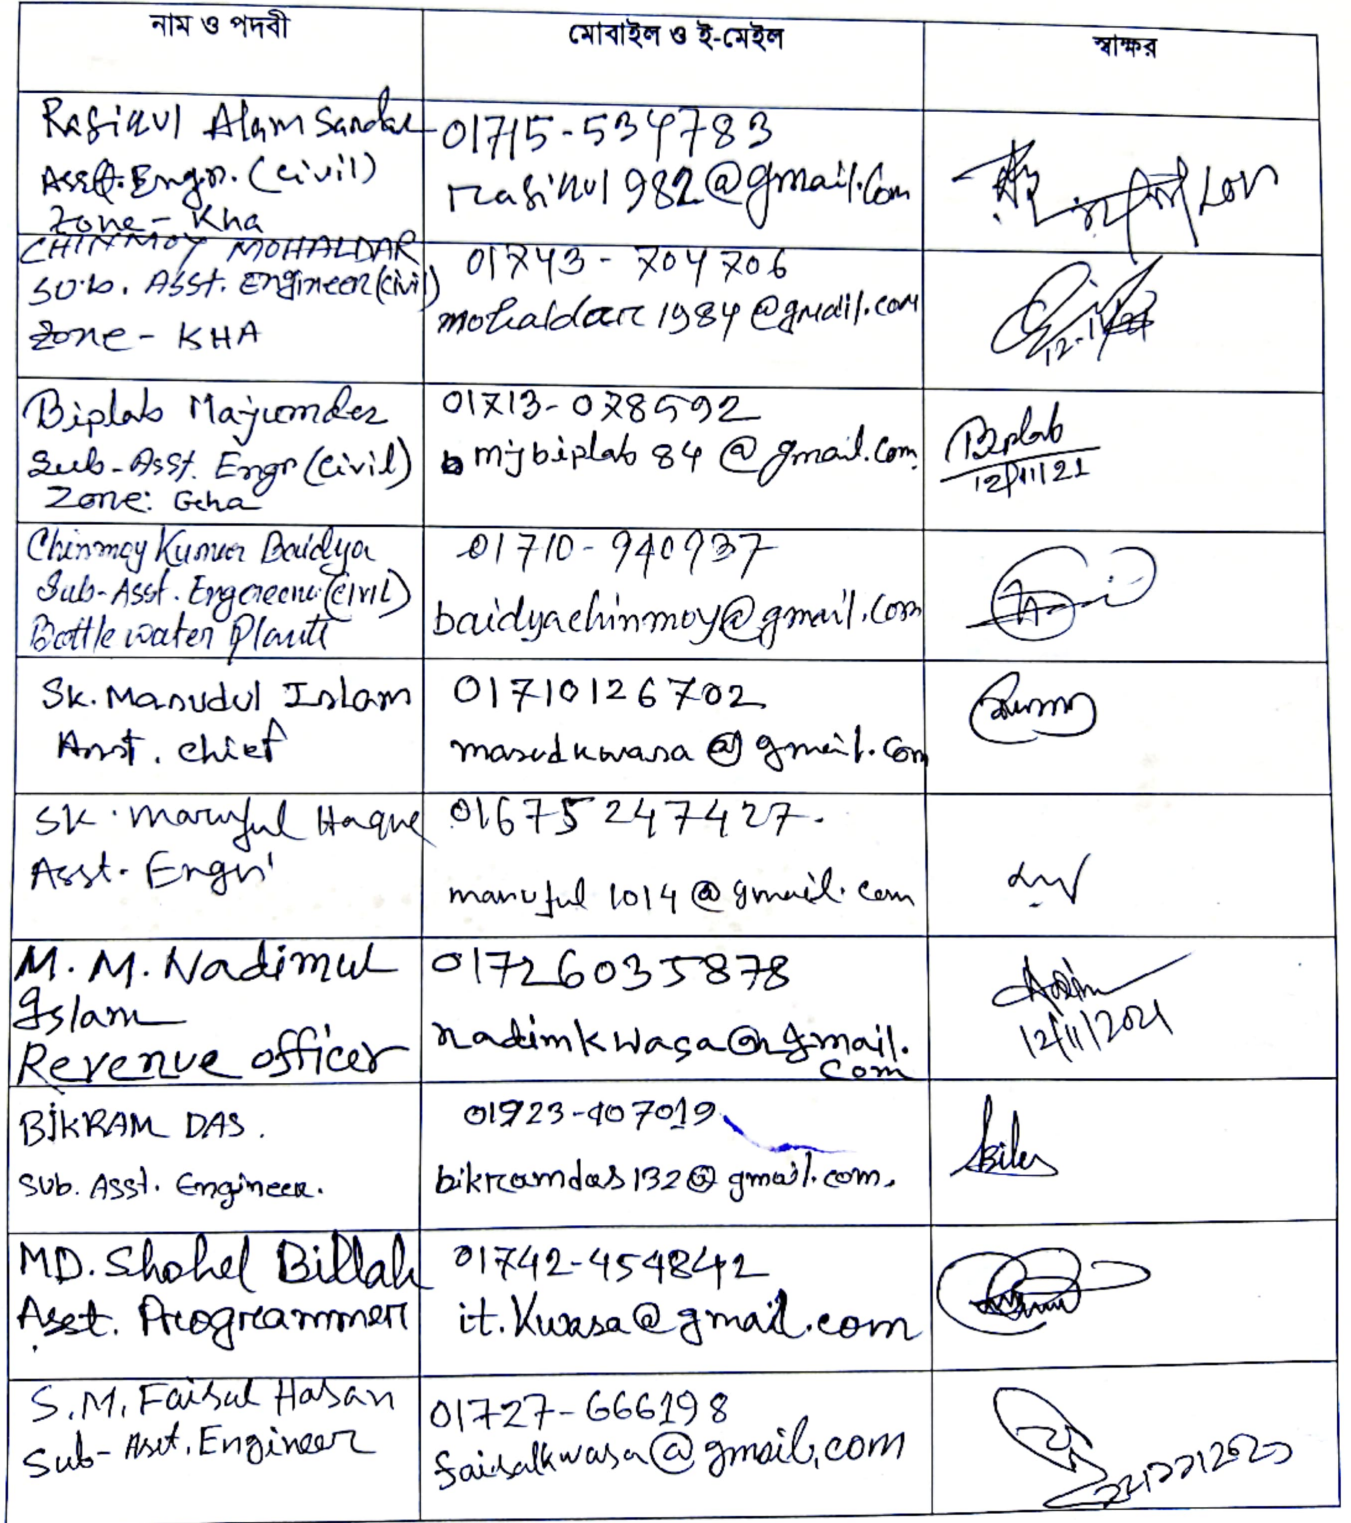 নাম ও পদবী
মোবাইল ও ই-মেইল
স্বাক্ষর
Rafiqul Alam Sardar
Asstt. Engr. (civil)
Zone - Kha
01715-534783
rafiqul982@gmail.com
CHINMOY MOHALDAR
Sub. Asst. Engineer (civil)
Zone - KHA
01743-704706
mohaldar1984@gmail.com
12-11-21
Biplab Majumder
Sub-Asst. Engr (civil)
Zone: Gha
01713-078592
mjbiplab84@gmail.com
Biplab
12/11/21
Chinmoy Kumar Baidya
Sub-Asst. Engineer (civil)
Bottle water Plant
01710-940937
baidyachinmoy@gmail.com
Sk. Masudul Islam
Asst. chief
01710126702
masudkwasa@gmail.com
SK. maruful Haque
Asst. Engr
01675247427.
maruful1014@gmail.com
M. M. Nadimul
Islam
Revenue officer
01726035878
nadimkwasa@gmail.
com
12/11/2021
BIKRAM DAS.
Sub. Asst. Engineer.
01923-407019
bikramdas132@gmail.com.
MD. Shohel Billah
Asst. Programmer
01742-454842
it.kwasa@gmail.com
S.M. Faisal Hasan
Sub-Asst. Engineer
01727-666198
faisalkwasa@gmail.com